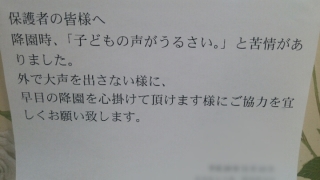 保護者の皆様へ
降園時、「子どもの声がうるさい。」と苦情があ
りました。
外で大声を出さない様に、
早目の降園を心掛けて頂けます様にご協力を宜
しくお願い致します。